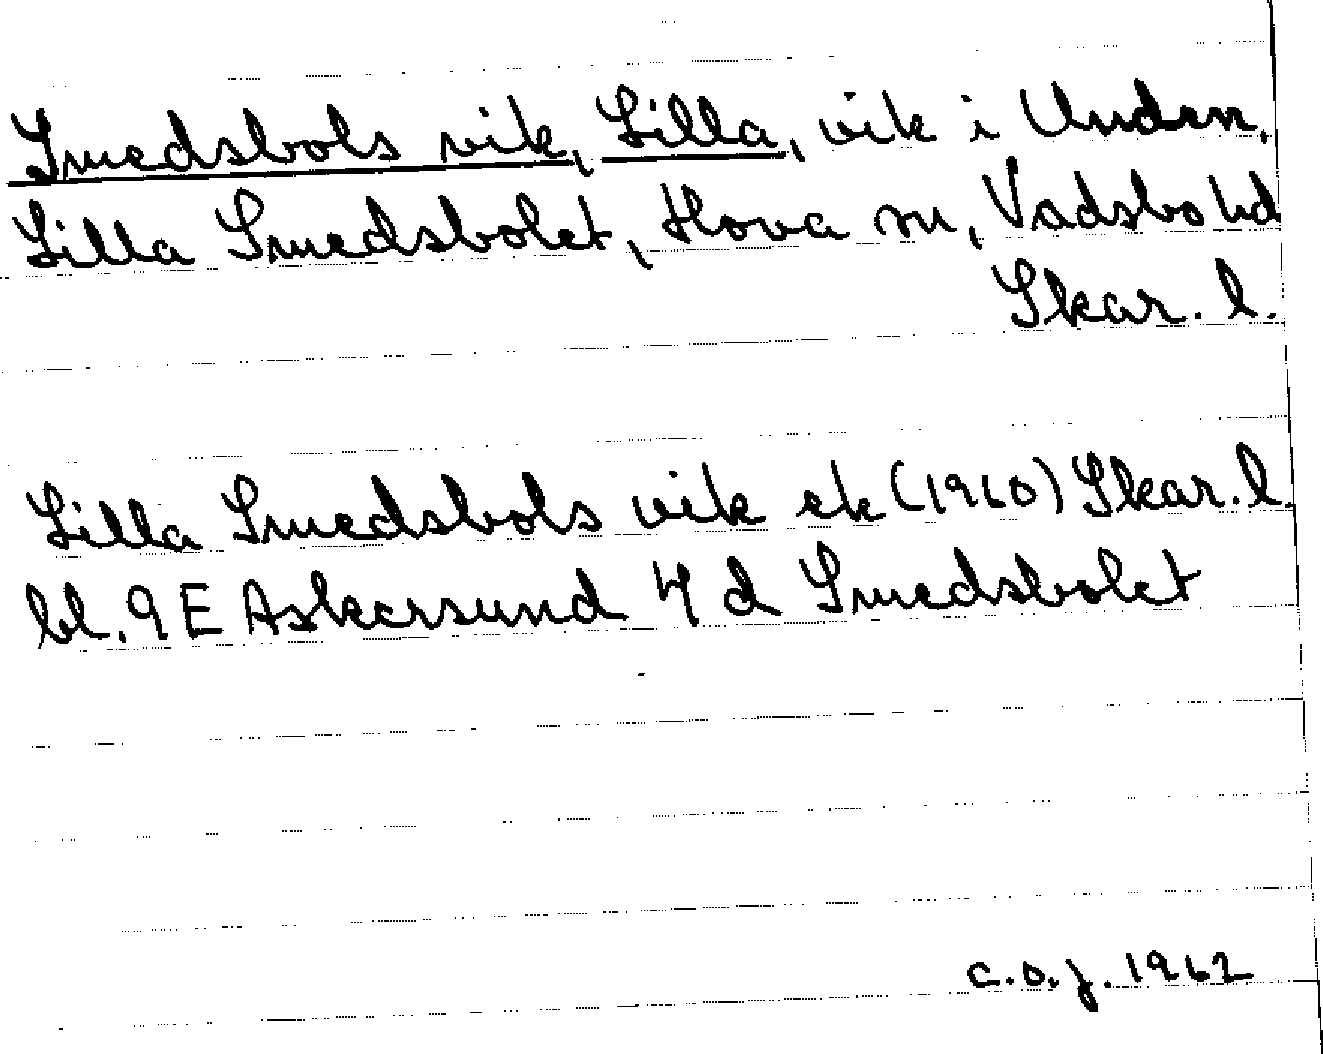 Smedsbols vik, Lilla, vik i Unden,
Lilla Smedsbolet, Hova sn, Vadsbo hd
Skar. l.
Lilla Smedsbols vik ek (1960) Skar. l.
bl. 9 E Askersund 4 d Smedsbolet
c.o.j. 1962